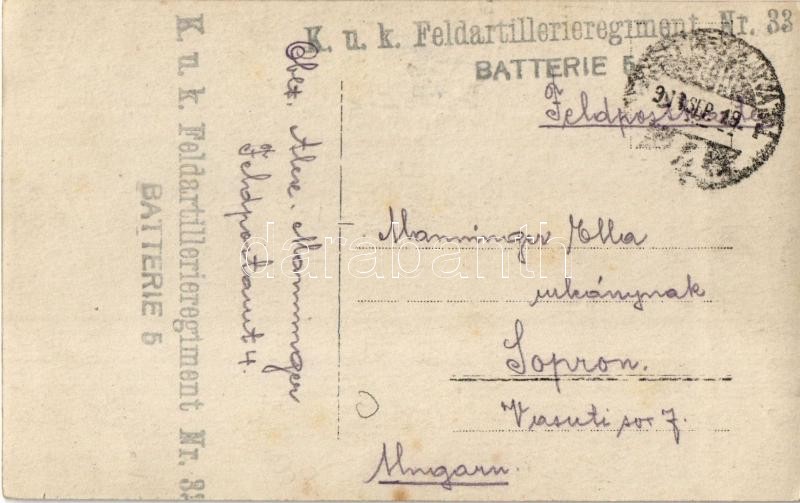 K. u. k. Feldartillerieregiment Nr. 33
BATTERIE 5
K. u. k. Feldartillerieregiment Nr. 33
BATTERIE 5
Feldpostkarte
Alex. Manninger
Feldpostamt 4.
Manninger Ella
urhánynak
Sopron.
Vasuti sor 7.
Ungarn.
darabanth